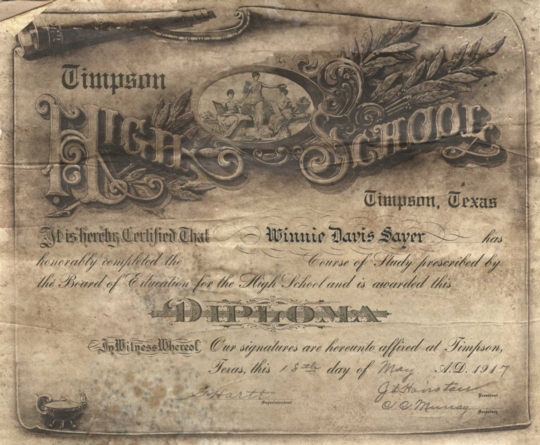 Timpson
HIGH SCHOOL
Timpson, Texas
It is hereby Certified That Winnie Davis Sayer has
honorably completed the Course of Study prescribed by
the Board of Education for the High School and is awarded this
DIPLOMA
In Witness Whereof, Our signatures are hereunto affixed at Timpson,
Texas, this 18th day of May A.D. 1917
President
Superintendent
Secretary